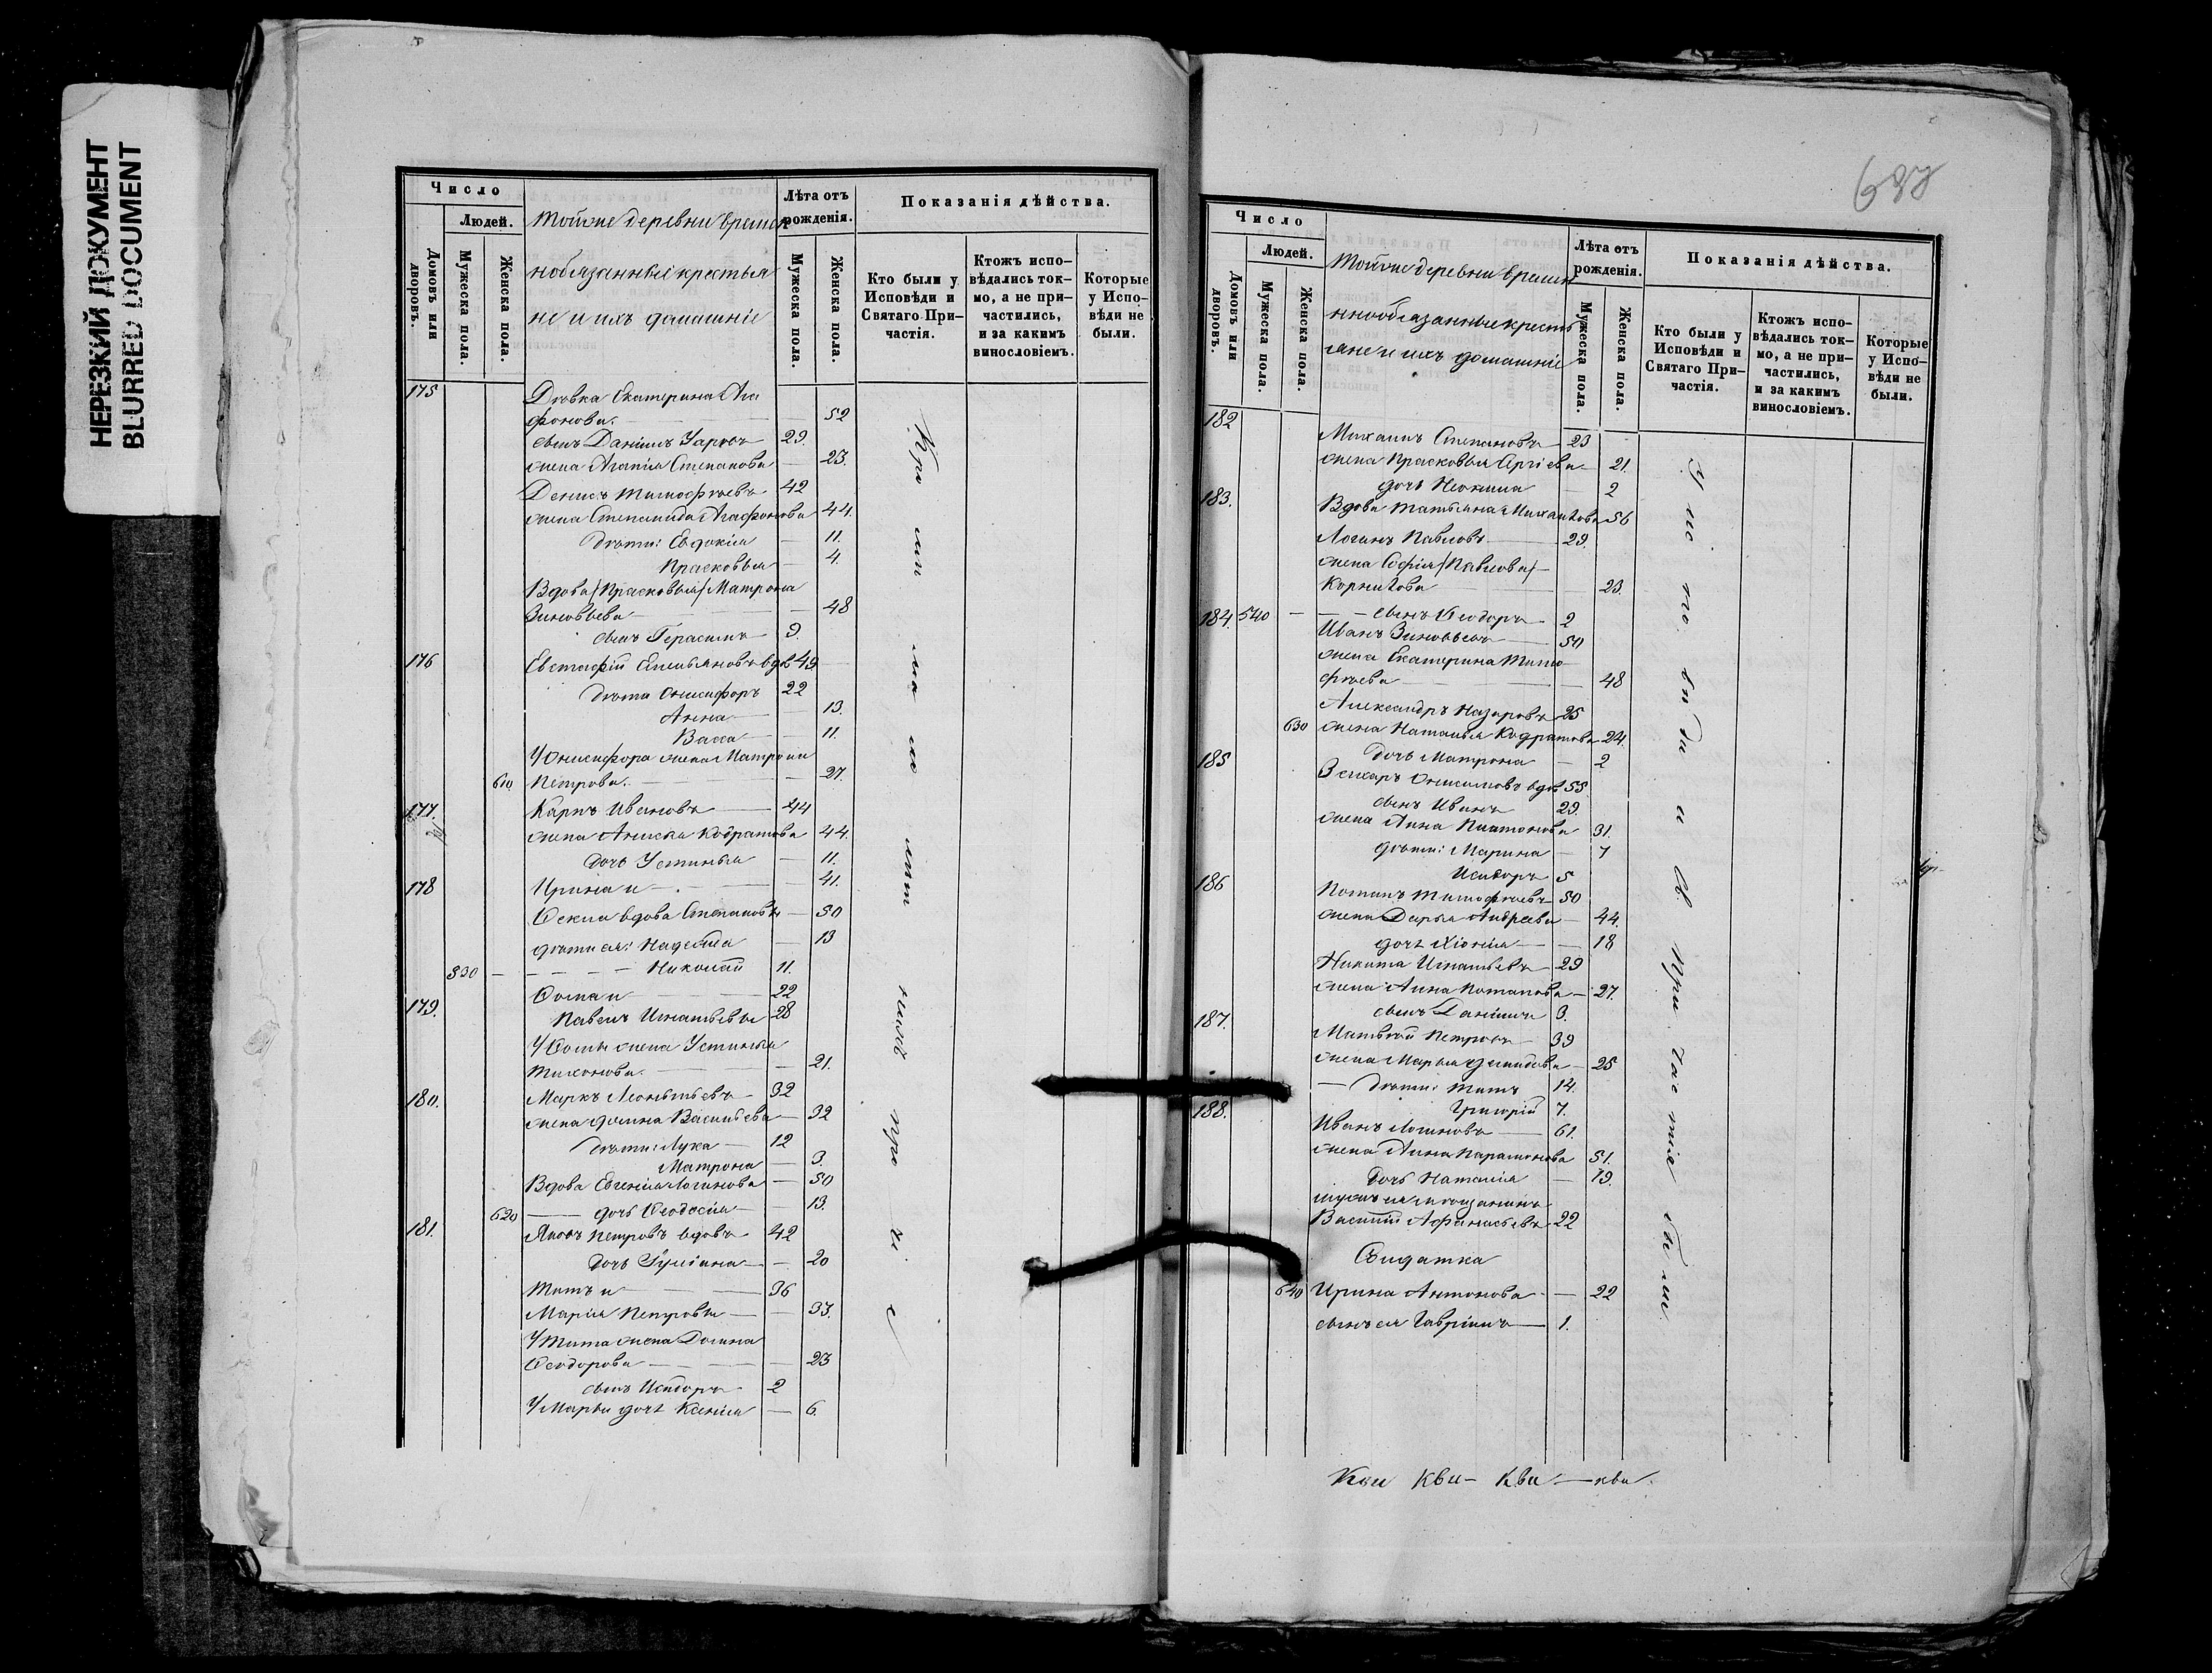 НЕРЕЗКИЙ ДОКУМЕНТ
BLURRED DOCUMENT
Число
Людей.
Домовъ или дворовъ.
Мужеска пола.
Женска пола.
Тойже деревни времен
нобязанные крестья
не и ихъ домашніе
Лѣта отъ рожденія.
Мужеска пола.
Женска пола.
Показанія дѣйства.
Кто были у Исповѣди и Святаго Причастія.
Ктожъ исповѣдались токмо, а не причастились, и за какимъ винословіемъ.
Которые у Исповѣди не были.
175 Дѣвка Екатерина Ага
фонова. — 52
сынъ Даніилъ Уаровъ 29.
жена Агапія Степанова — 23.
Денисъ Тимофѣевъ 42
жена Степанида Агафонова 44.
дѣти: Евдокія — 11.
Прасковья — 4.
Вдова /Прасковья/ Матрона
Зиновьева — 48
сынъ Герасимъ 9.
176 Евстафій Емельяновъ вдв 49
дѣти Онисифоръ 22
Анна — 13.
Васса — 11.
У Онисифора жена Матрона
610 Петрова. — 27.
177. Карпъ Ивановъ 44
жена Анисья Кодратова 44.
дочь Устинья — 11.
178 Ирина и — 41.
Ѳекла вдова Степановы — 50
дѣти ея: Надежда — 13
530 — Николай 11.
Ѳома и 22
179. Павелъ Игнатьевы 28
У Ѳомы жена Устинья
Тихонова. — 21.
180. Маркъ Леонтьевъ 32
жена Домна Васильева — 32
дѣти: Лука 12
Матрона — 3.
Вдова Евгенія Логинова — 50
620 дочь Ѳеодосія — 13.
181. Яковъ Петровъ вдовъ 42
дочь Іуліана — 20
Титъ и 36
Марія Петровы — 33.
У Тита жена Домна
Ѳеодорова — 23
сынъ Исидоръ 2
У Марьи дочь Ксенія — 6.
687
Число
Людей.
Домовъ или дворовъ.
Мужеска пола.
Женска пола.
Тойже деревни времен
ннообязанные кресть
яне и ихъ домашніе
Лѣта отъ рожденія.
Мужеска пола.
Женска пола.
Показанія дѣйства.
Кто были у Исповѣди и Святаго Причастія.
Ктожъ исповѣдались токмо, а не причастились, и за какимъ винословіемъ.
Которые у Исповѣди не были.
182 Михаилъ Степановъ 23
жена Прасковья Сергіева 21.
дочь Неонила — 2
183. Вдова Татьяна Михайлова 56
Логинъ Павловъ 29.
жена Софія /Павлова/
Корнилова 23.
184. 540 — сынъ Ѳеодоръ 2
Иванъ Зиновьевъ 50
жена Екатерина Тимо
фѣева — 48
Александръ Назаровъ 25
630 жена Наталья Кодратова 24.
185 дочь Матрона — 2
Захаръ Онисимовъ вдв 55.
сынъ Иванъ 29.
жена Анна Платонова 31.
дѣти: Марина — 7
Исидоръ 5
186 Потапъ Тимофѣевъ 50
жена Дарья Андреева — 44.
дочь Хіонія — 18
Никита Игнатьевъ 29
жена Анна Потапова — 27.
сынъ Даніилъ 3.
187. Матвѣй Петровъ 39
жена Марья Демидова — 25
дѣти: Титъ 14.
Григорій 7.
188. Иванъ Логиновъ 61.
жена Анна Парамонова 51.
дочь Наталія — 19.
мужъ ея мѣщанинъ
Василій Афанасьевъ 22
Солдатка
640 Ирина Антонова — 22
сынъ ея Гавріилъ 1.
У исповѣди и Св. Причастія были.
Кви Кви — Кви — кви.